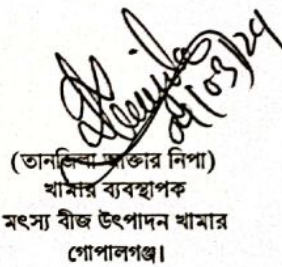 (তানজিলা আক্তার নিপা)
খামার ব্যবস্থাপক
মৎস্য বীজ উৎপাদন খামার
গোপালগঞ্জ।